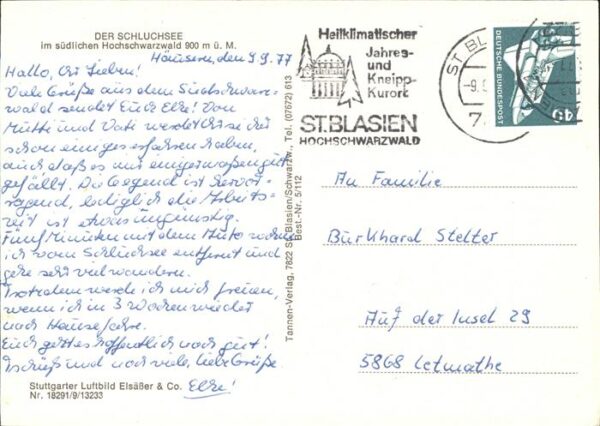 DER SCHLUCHSEE
im südlichen Hochschwarzwald 900 m ü. M.
Häusern, den 9.9.77
Hallo, Ihr Lieben!
Viele Grüße aus dem Südschwarz-
wald sendet Euch Elke! Von
Mutti und Vati werdet Ihr sicher
schon einiges erfahren haben,
auch daß es mir einigermaßen gut
gefällt. Die Gegend ist hervor-
ragend, lediglich die Arbeits-
zeit ist etwas ungünstig.
Fünf Minuten mit dem Auto wohne
ich vom Schluchsee entfernt und
gehe sehr viel wandern.
Trotzdem werde ich mich freuen,
wenn ich in 3 Wochen wieder
nach Hause fahre.
Euch geht es hoffentlich noch gut!
Tschüß und noch viele, liebe Grüße
Elke!
Stuttgarter Luftbild Elsäßer & Co.
Nr. 18291/9/13233
Tannen-Verlag, 7822 St. Blasien/Schwarzw., Tel. (07672) 613
Best.-Nr. 5/112
Heilklimatischer
Jahres-
und
Kneipp-
Kurort
ST. BLASIEN
HOCHSCHWARZWALD
ST. BL
-9.
7
DEUTSCHE BUNDESPOST
40
An Familie
Burkhard Stelter
Auf der Insel 29
5868 Letmathe